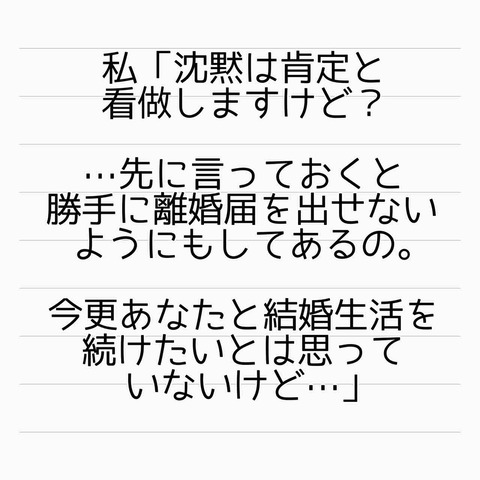 私「沈黙は肯定と
看做しますけど？
…先に言っておくと
勝手に離婚届を出せない
ようにもしてあるの。
今更あなたと結婚生活を
続けたいとは思って
いないけど…」